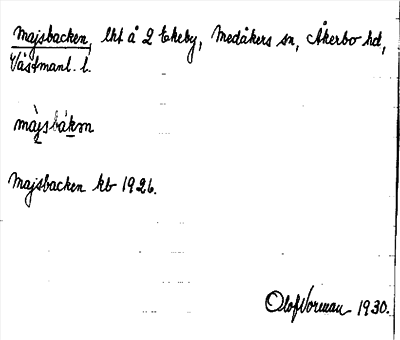 Majsbacken, lht å 2 Ekeby, Medåkers sn, Åkerbo hd,
Västmanl. l.
màjsbák∂n
Majsbacken kb 1926.
Olof Norman 1930.